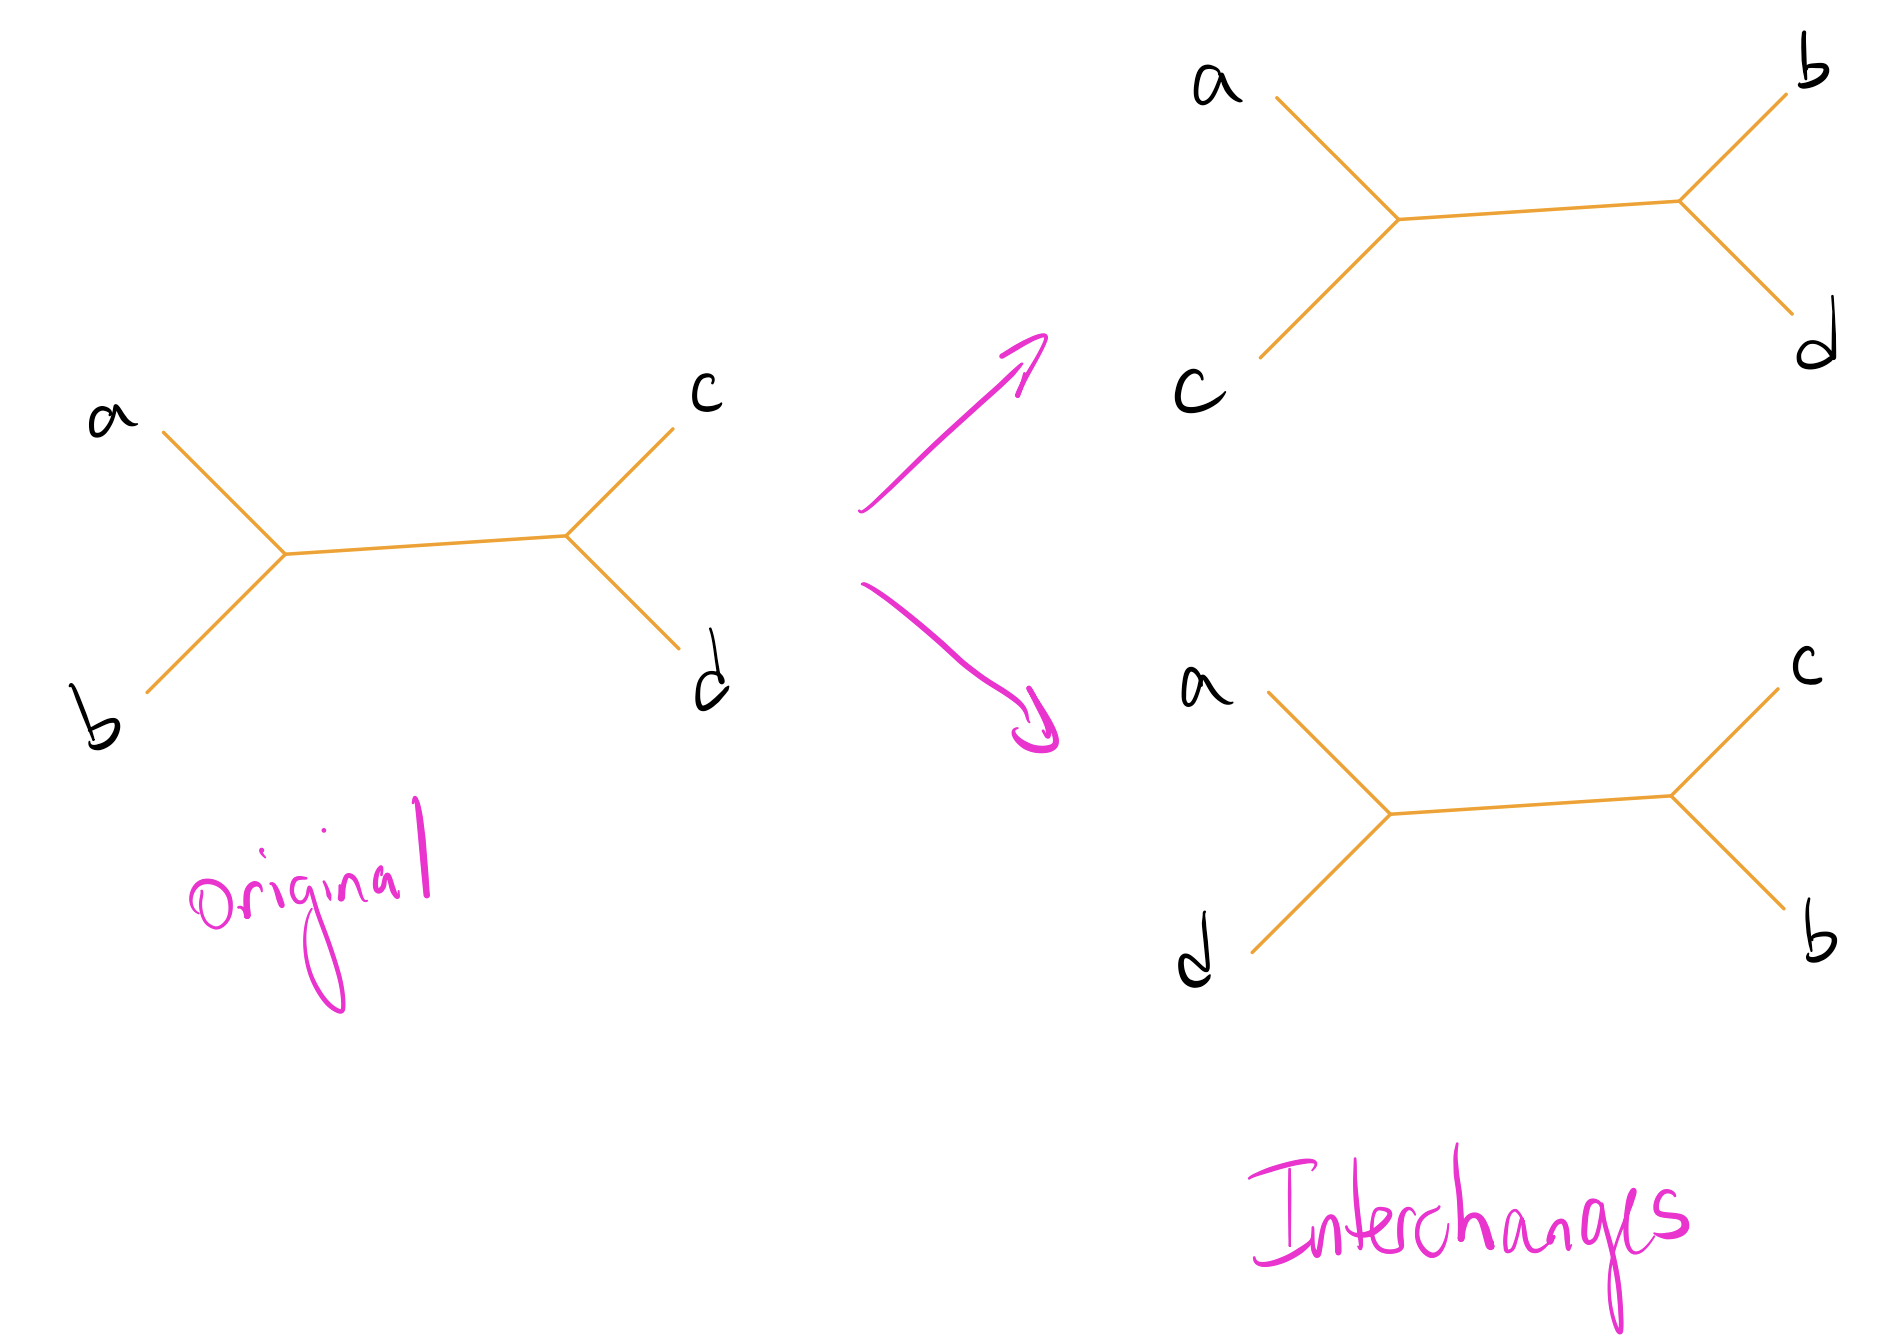 a
c
b
d
Original
a
b
c
d
a
c
d
b
Interchanges